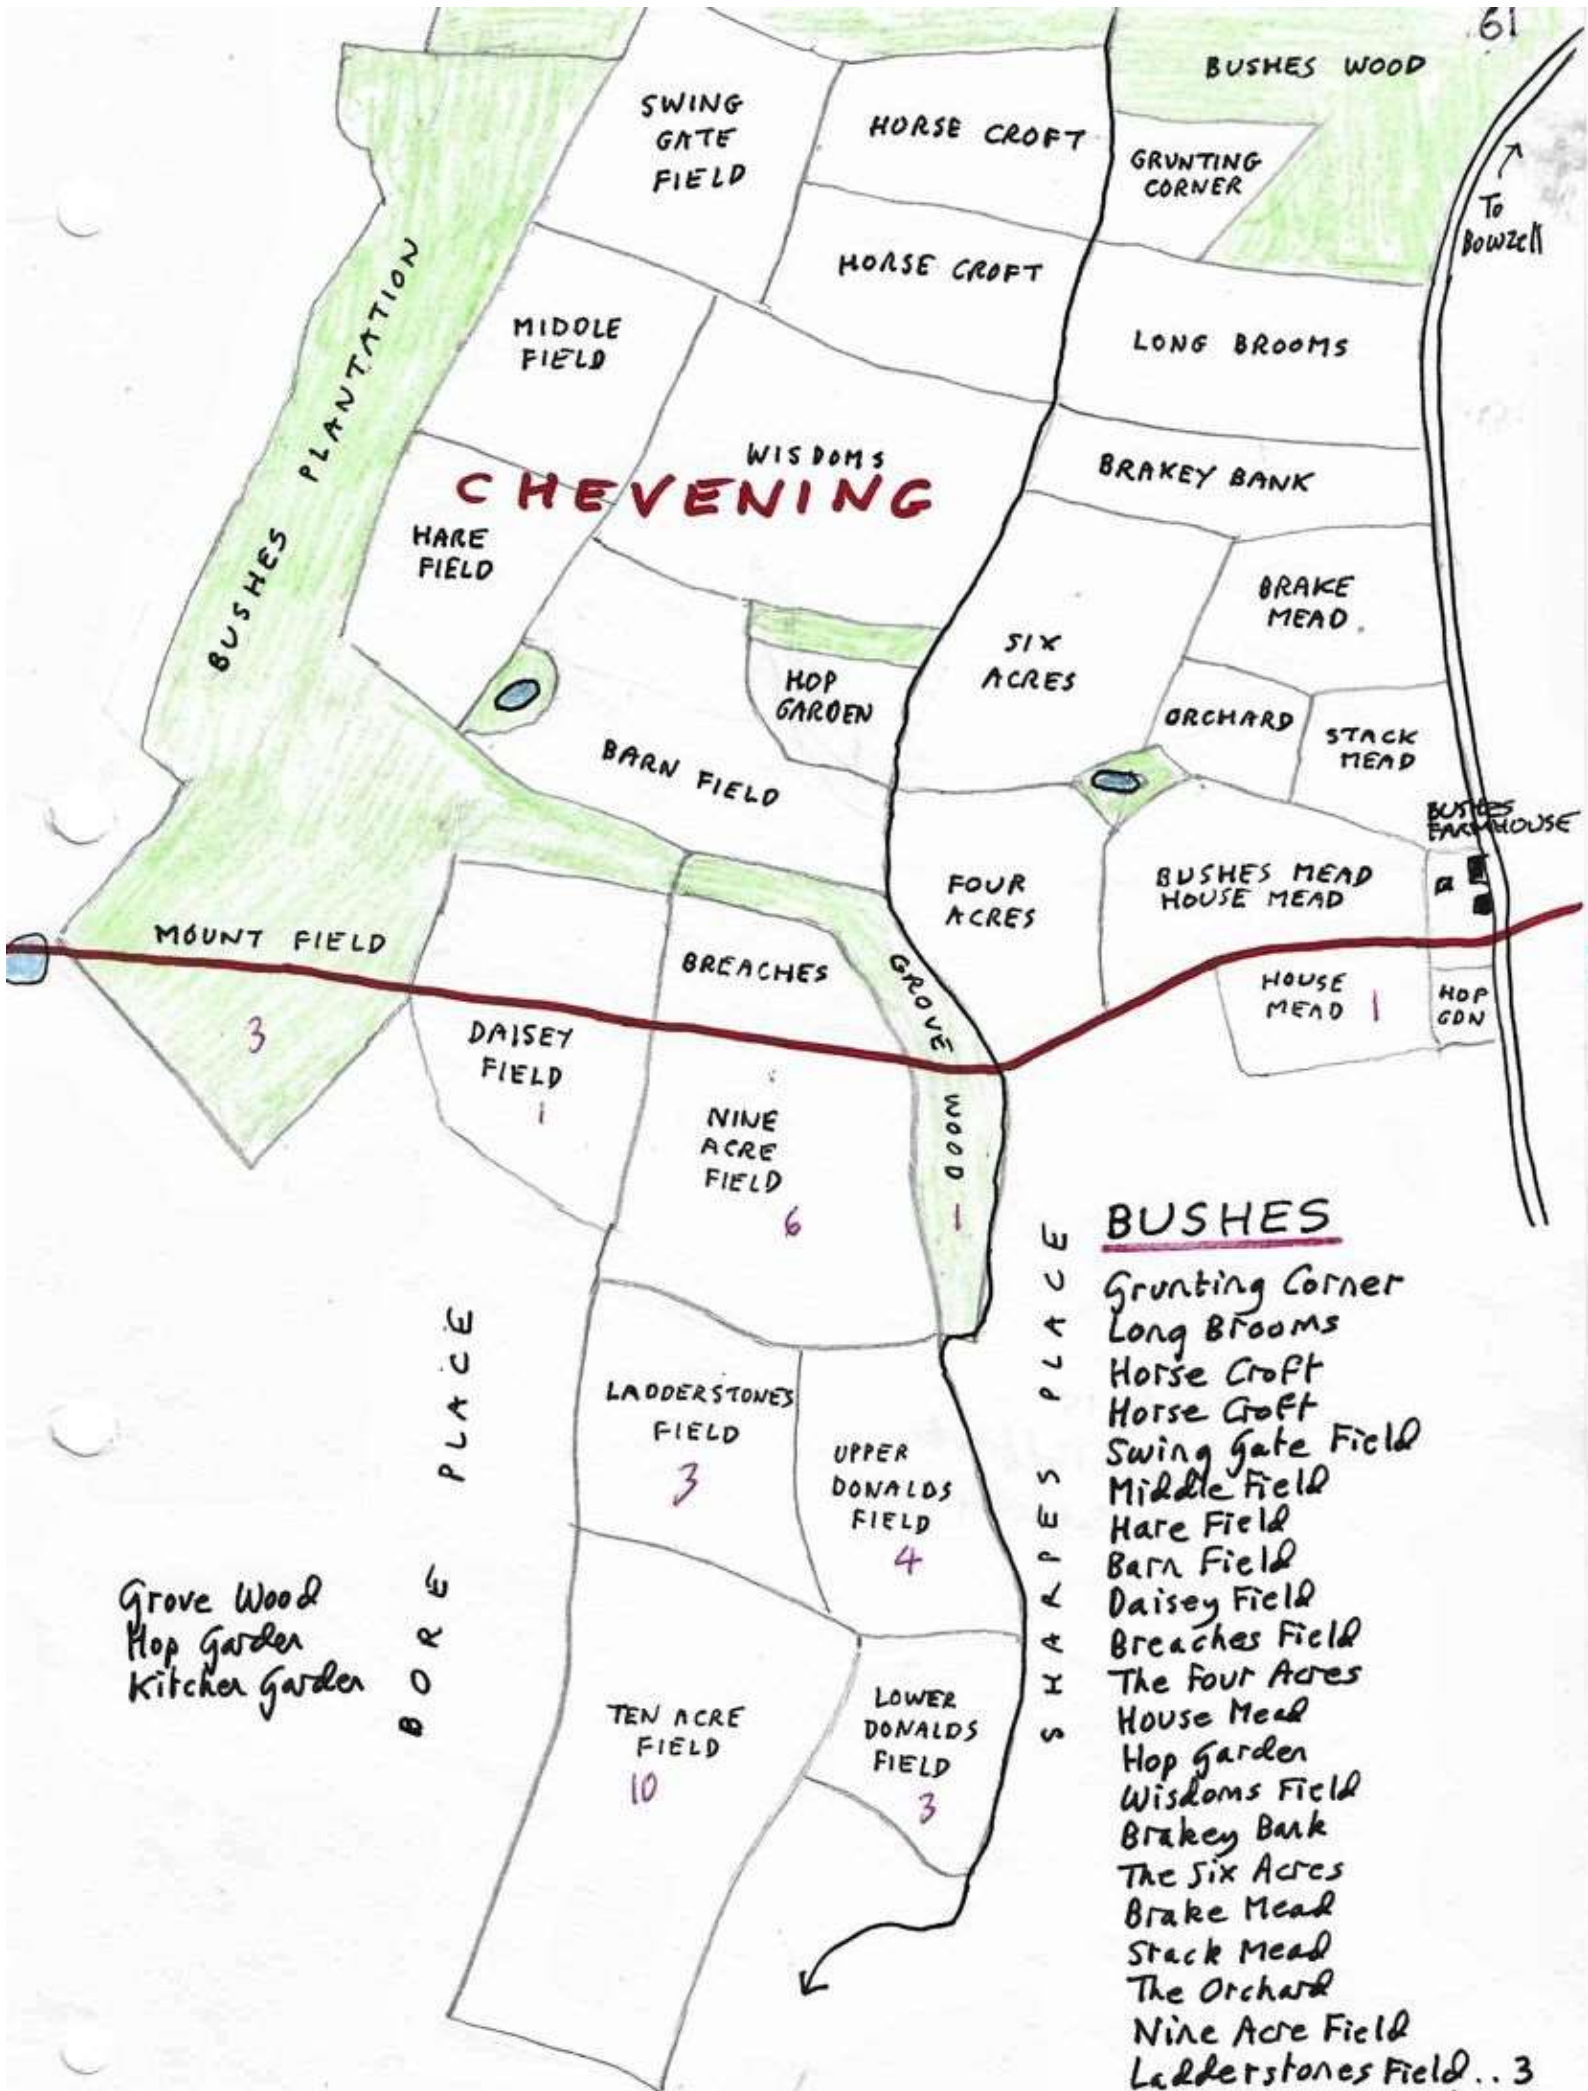 61
BUSHES WOOD
SWING
GATE
FIELD
HORSE CROFT
GRUNTING
CORNER
To
Bowzell
HORSE CROFT
MIDDLE
FIELD
LONG BROOMS
BUSHES PLANTATION
WISDOMS
BRAKEY BANK
CHEVENING
HARE
FIELD
BRAKE
MEAD
SIX
ACRES
HOP
GARDEN
ORCHARD
STACK
MEAD
BARN FIELD
BUSHES
FARMHOUSE
FOUR
ACRES
BUSHES MEAD
HOUSE MEAD
MOUNT FIELD
3
BREACHES
GROVE WOOD
1
HOUSE
MEAD 1
HOP
GDN
DAISEY
FIELD
1
NINE
ACRE
FIELD
6
LADDERSTONES
FIELD
3
UPPER
DONALDS
FIELD
4
BORE PLACE
SHARPES PLACE
TEN ACRE
FIELD
10
LOWER
DONALDS
FIELD
3
Grove Wood
Hop Garden
Kitchen Garden
BUSHES
Grunting Corner
Long Brooms
Horse Croft
Horse Croft
Swing Gate Field
Middle Field
Hare Field
Barn Field
Daisey Field
Breaches Field
The Four Acres
House Mead
Hop Garden
Wisdoms Field
Brakey Bank
The Six Acres
Brake Mead
Stack Mead
The Orchard
Nine Acre Field
Ladderstones Field..3